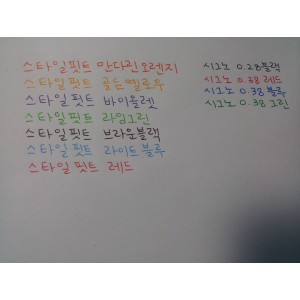 스타일핏트 만다린오렌지
스타일핏트 골든옐로우
스타일핏트 바이올렛
스타일핏트 라임그린
스타일핏트 브라운블랙
스타일핏트 라이트블루
스타일핏트 레드
시그노 0.28블랙
시그노 0.38 레드
시그노 0.38 블루
시그노 0.38 그린